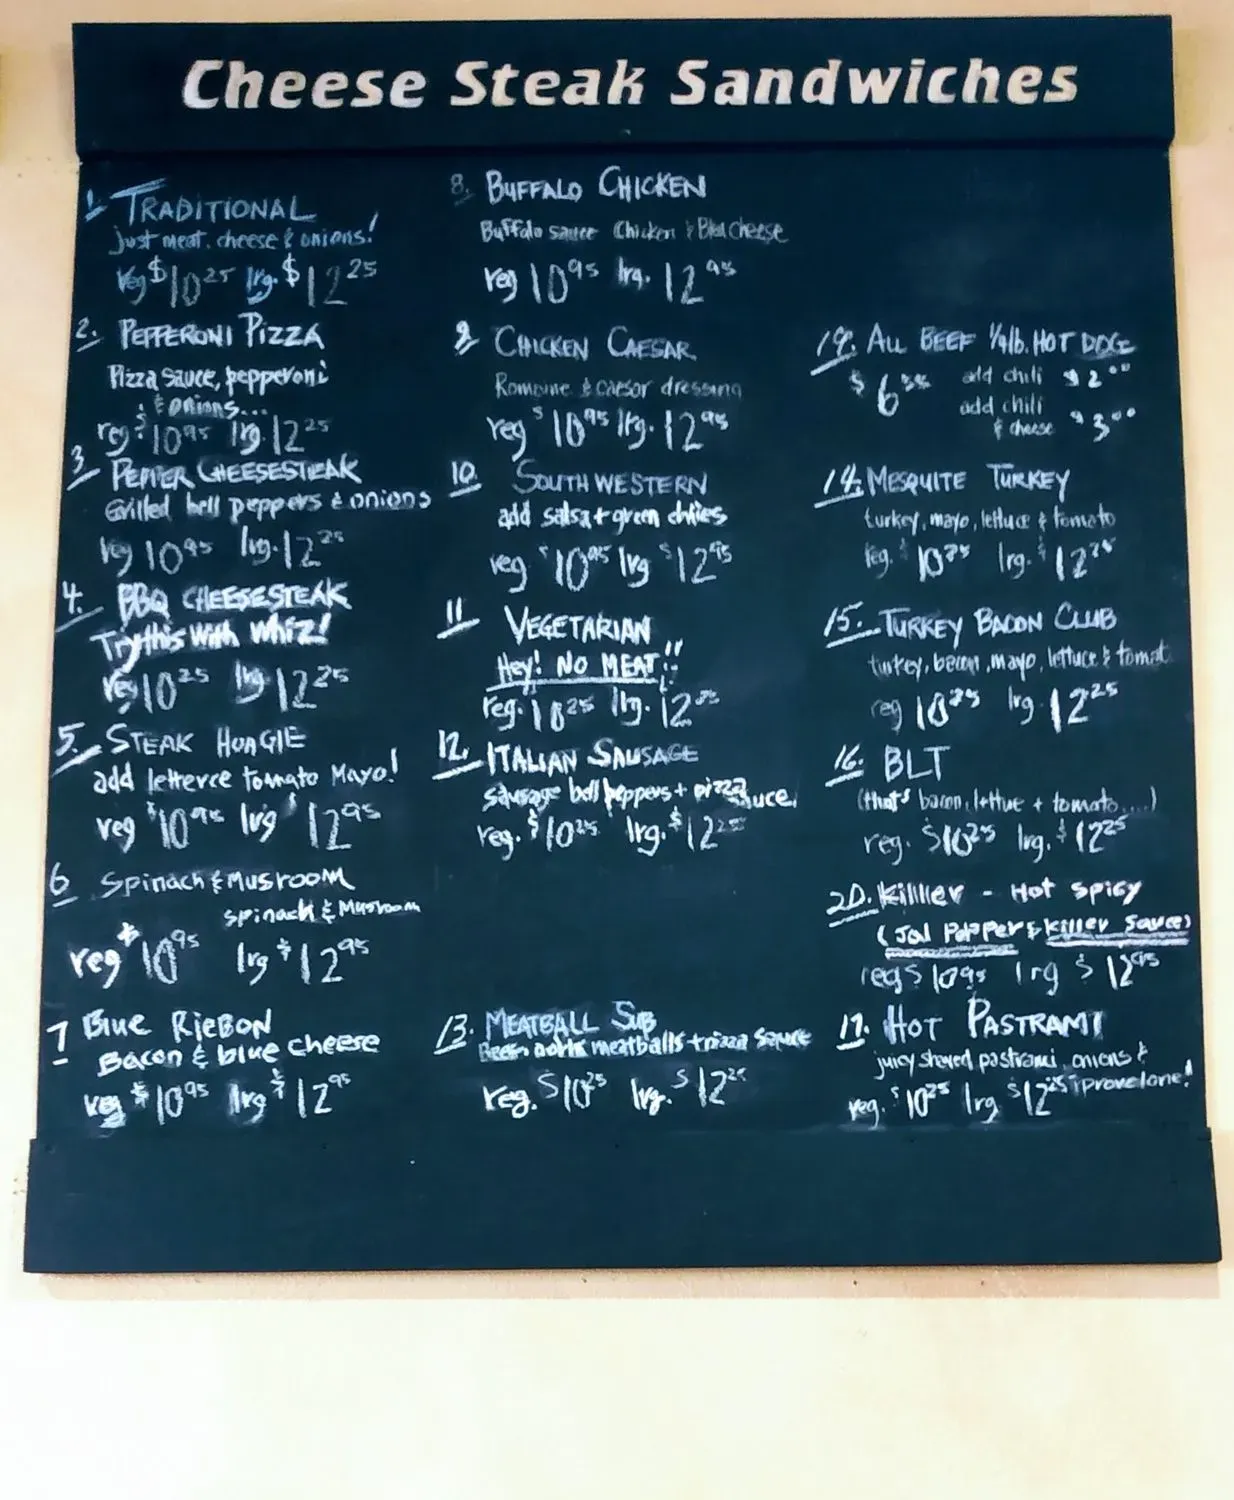 Cheese Steak Sandwiches
1. TRADITIONAL
just meat, cheese & onions!
reg $10 25 lrg. $12 25
2. PEPPERONI PIZZA
Pizza sauce, pepperoni
& onions...
reg. $10 95 lrg. 12 25
3 PEPPER CHEESESTEAK
Grilled bell peppers & onions
reg 10 95 lrg. 12 25
4. BBQ CHEESESTEAK
Try this with whiz!
reg 10 25 lrg 12 25
5. STEAK HOAGIE
add letterce tomato Mayo!
reg $10 95 lrg $12 95
6 Spinach & MUSROOM
spinach & Musroom
reg $10 95 lrg $12 95
7 Blue RIEBON
Bacon & blue cheese
reg $10 95 lrg $12 95
8. BUFFALO CHICKEN
Buffalo sauce Chicken & Bleu cheese
reg 10 95 lrg. 12 95
9 CHICKEN CAESAR
Romaine & caesor dressing
reg $10 95 lrg. 12 95
10. SOUTHWESTERN
add salsa + green chiles
reg $10 95 lrg $12 95
11 VEGETARIAN
Hey! NO MEAT!!
reg. 10 25 lrg. 12 25
12. ITALIAN SAUSAGE
sausage bell peppers + pizza sauce
reg. $10 25 lrg. $12 25
13. MEATBALL SUB
meatballs + pizza sauce
reg. $10 25 lrg. $12 25
19. ALL BEEF 1/4lb. HOT DOG
$6 add chili $2 00
add chili
& cheese $3 00
14. MESQUITE TURKEY
turkey, mayo, lettuce & tomato
reg. $10 25 lrg. $12 25
15. TURKEY BACON CLUB
turkey, bacon, mayo, lettuce & tomat
reg 10 25 lrg 12 25
16. BLT
(that's bacon, lettue + tomato....)
reg. $10 25 lrg. $12 25
20. Killler - Hot spicy
(Jal Pepper & killer sauce)
reg $10 95 lrg $12 95
17. HOT PASTRAMI
juicy shaved pastrami, onions &
reg. $10 25 lrg $12 25 provelone!